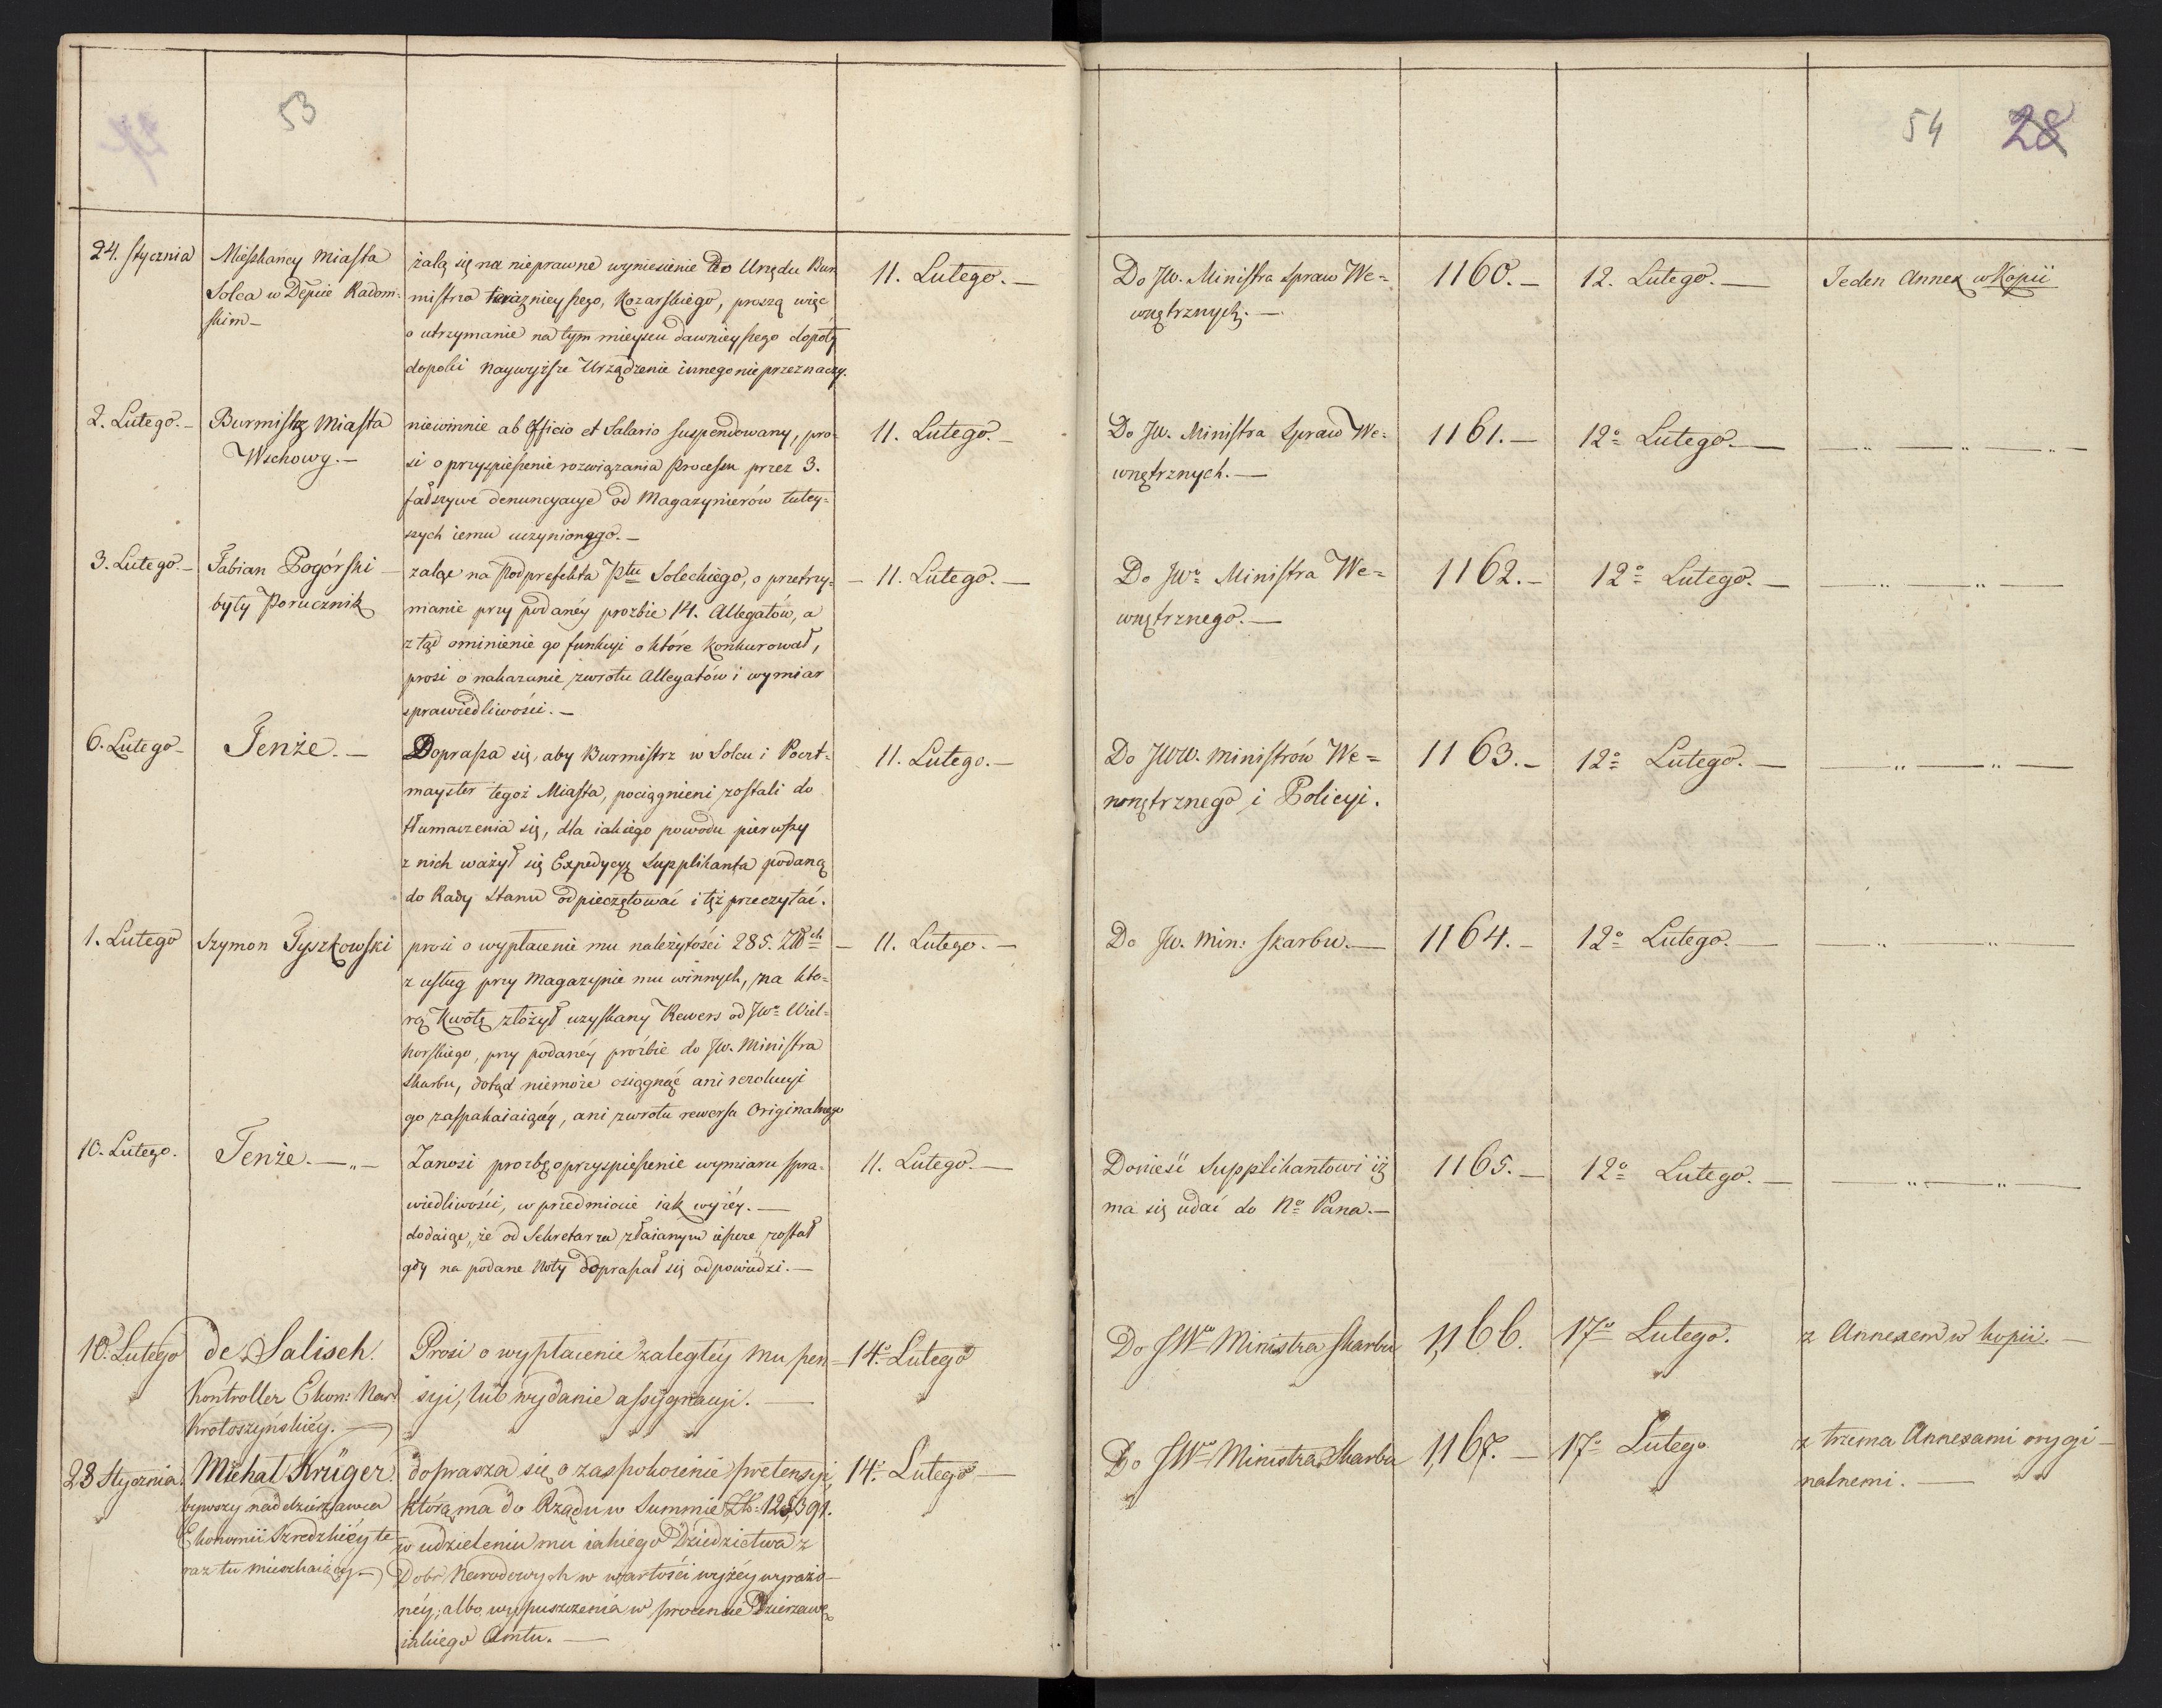 53
54 28
24. Stycznia
Mieszkancy Miasta
Solca w Depcie Radom-
skim —
żalą się na nieprawne wyniesienie do Urzędu Bur
mistrza teraznieyszego, Kozarskiego, proszą więc
o utrzymanie na tym mieyscu dawnieyszego dopóty
dopoki naywyższe Urządzenie innego nie przeznaczy.
11. Lutego. —
Do JW. Ministra Spraw We=
wnętrznych. —
1160. —
12. Lutego. —
Jeden Annex w Kopii
2. Lutego. —
Burmistrz Miasta
Wschowy. —
niewinnie ab Officio et Salario suspendowany, pro-
si o przyspieszenie rozwiązania Processu przez 3.
fałszywe denuncyacye od Magazynierów tutey-
szych iemu uczynionego. —
11. Lutego. —
Do JW. Ministra Spraw We=
wnętrznych. —
1161. —
12º Lutego. —
— „ — „ — „ —
3. Lutego. —
Fabian Pogórski —
były Porucznik
żaląc na Podprefekta Ptu Soleckiego, o przetrzy-
manie przy podanéy prozbie 14. Allegatów, a
ztąd ominienie go funkcyi o które konkurował,
prosi o nakazanie zwrotu Allegatów i wymiar
sprawiedliwości. —
— 11. Lutego. —
Do JWº Ministra We=
wnętrznego. —
1162. —
12º Lutego. —
— „ — „ —
6. Lutego —
Tenże. —
Doprasza się, aby Burmistrz w Solcu i Poczt-
mayster tegoż Miasta, pociągnieni zostali do
tłumaczenia się, dla iakiego powodu pierwszy
z nich ważył się Expedycyą Supplikanta podaną
do Rady Stanu odpieczętować i też przeczytać.
11. Lutego. —
Do JWW. Ministrów We=
wnętrznego i Policyi.
1163. —
12º Lutego. —
— „ — „ —
1. Lutego
Szymon Tyszkowski
prosi o wypłacenie mu należytości 285. Złłch
z usług przy Magazynie mu winnych, na któ-
rą Kwotę złożył uzyskany Rewers od JWº Wiel-
horskiego, przy podanéy proźbie do JW. Ministra
Skarbu, dotąd niemoże osiągnąć ani rezolucyi
go zaspakaiaiącéy, ani zwrotu rewersu Originalnego
— 11. Lutego. —
Do JW. Min: Skarbu. —
1164. —
12º Lutego. —
— „ — „ —
10. Lutego.
Tenże. — „ —
Zanosi prozbę o przyspieszenie wymiaru spra-
wiedliwości, w przedmiocie iak wyżéy. —
dodaiąc, że od Sekretarza złaianym ieszcze został
gdy na podane Noty dopraszał się odpowiedzi. —
11. Lutego. —
Donieść Supplikantowi iż
ma się udać do Nº Pana. —
1165. —
12º Lutego. —
— „ — „ —
10. Lutego
de Salisch.
Kontroller Ekon: Nar:
Krotoszyńskiéy. —
Prosi o wypłacenie zaległéy mu pen-
syi, lub wydanie assygnacyi. —
14º Lutego
Do JWº Ministra Skarbu
1,166.
17º Lutego.
z Annexem w kopii. —
28 Stycznia.
Michał Krüger.
bywszy naddzierżawca
Ekonomii Szredzkiéy te
raz tu mieszkaiący —
doprasza się o zaspokoienie pretensyi,
którą ma do Rządu w Summie Zł: 128,391.
w udzieleniu mu iakiego Dziedzictwa z
Dobr Narodowych w wartości wyżéy wyrażo-
néy; albo wypuszczenia w procencie Dzierżawę
iakiego Amtu. —
14º Lutego —
Do JWº Ministra Skarbu
1,167. —
17º Lutego
z trzema Annexami orygi-
nalnemi. —